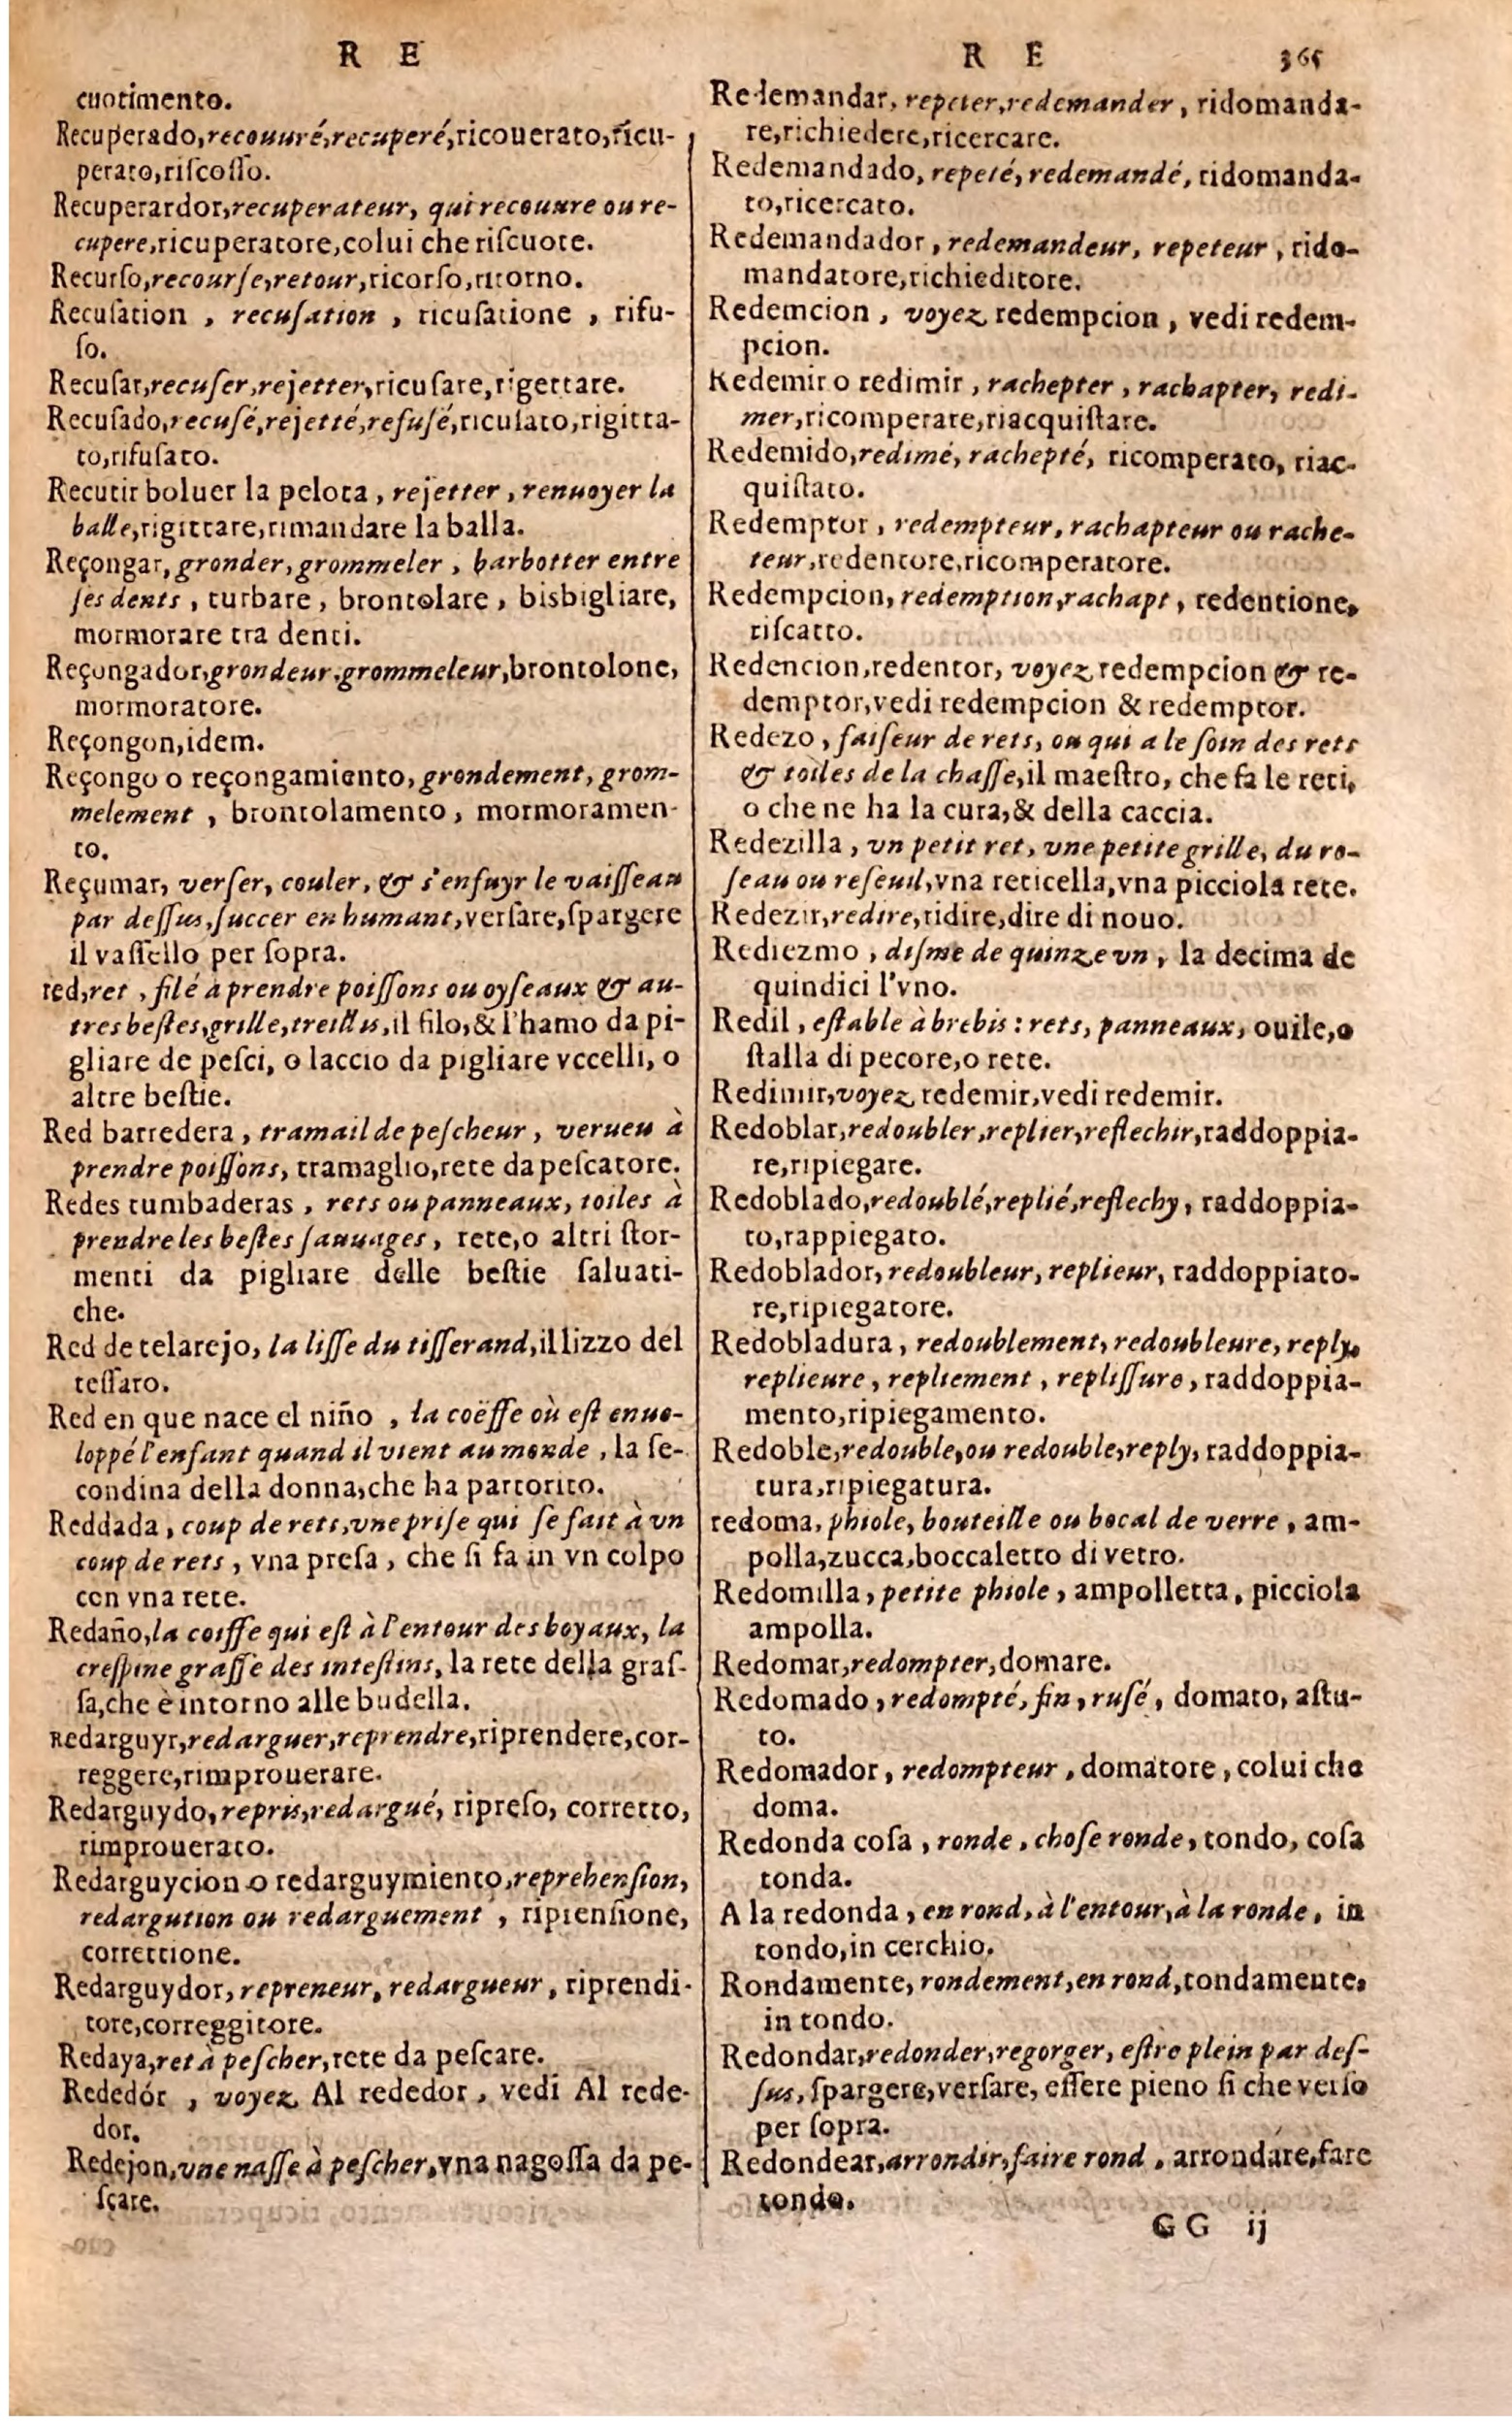 R E
cuotimento.
Recuperado,recouuré,recuperé,ricouerato,ricu-
perato,riſcoſſo.
Recuperardor,recuperateur, qui recouure ou re-
cupere,ricuperatore,colui che riſcuote.
Recurſo,recourſe,retour,ricorſo,ritorno.
Recuſation , recuſation , ricuſatione , rifu-
ſo.
Recuſar,recuſer,rejetter,ricuſare,rigettare.
Recuſado,recuſé,rejetté,refuſé,ricuſato,rigitta-
to,rifuſato.
Recutir boluer la pelota , rejetter , renuoyer la
balle,rigittare,rimandare la balla.
Reçongar, gronder, grommeler , barbotter entre
ſes dents , turbare , brontolare , bisbigliare,
mormorare tra denti.
Reçongador,grondeur,grommeleur,brontolone,
mormoratore.
Reçongon,idem.
Reçongo o reçongamiento, grondement, grom-
melement , brontolamento , mormoramen-
to.
Reçumar, verſer, couler, & s'enfuyr le vaiſſeau
par deſſus, ſuccer en humant,verſare,ſpargere
il vaſſello per ſopra.
red,ret , filé à prendre poiſſons ou oyſeaux & au-
tres beſtes,grille,treillis,il filo,& l'hamo da pi-
gliare de peſci, o laccio da pigliare vccelli, o
altre beſtie.
Red barredera , tramail de peſcheur , verueu à
prendre poiſſons, tramaglio,rete da peſcatore.
Redes tumbaderas , rets ou panneaux, toiles à
prendre les beſtes ſauuages , rete,o altri ſtor-
menti da pigliare delle beſtie ſaluati-
che.
Red de telarejo, la liſſe du tiſſerand,il lizzo del
teſſaro.
Red en que nace el niño , la coëffe où eſt enue-
loppé l'enfant quand il vient au monde , la ſe-
condina della donna,che ha partorito.
Reddada , coup de rets,vne priſe qui ſe fait à vn
coup de rets , vna preſa , che ſi fa in vn colpo
con vna rete.
Redaño,la coiffe qui eſt à l'entour des boyaux, la
creſpine graſſe des inteſtins, la rete della graſ-
ſa,che è intorno alle budella.
Redarguyr,redarguer,reprendre,riprendere,cor-
reggere,rimprouerare.
Redarguydo,repris,redargué, ripreſo, corretto,
rimprouerato.
Redarguycion o redarguymiento,reprehenſion,
redargution ou redarguement , riprenſione,
correttione.
Redarguydor, repreneur, redargueur , riprendi-
tore,correggitore.
Redaya,ret à peſcher,rete da peſcare.
Rededór , voyez Al rededor , vedi Al rede-
dor.
Redejon,vne naſſe à peſcher,vna nagoſſa da pe-
ſcare.
R E 365
Redemandar, repeter,redemander , ridomanda-
re,richiedere,ricercare.
Redemandado, repeté, redemandé, ridomanda-
to,ricercato.
Redemandador , redemandeur, repeteur , rido-
mandatore,richieditore.
Redemcion , voyez redempcion , vedi redem-
pcion.
Redemir o redimir , rachepter , rachapter, redi-
mer,ricomperare,riacquiſtare.
Redemido,redimé, rachepté, ricomperato, riac-
quiſtato.
Redemptor , redempteur, rachapteur ou rache-
teur,redentore,ricomperatore.
Redempcion, redemption,rachapt , redentione,
riſcatto.
Redencion,redentor, voyez redempcion & re-
demptor,vedi redempcion & redemptor.
Redezo , faiſeur de rets, ou qui a le ſoin des rets
& toiles de la chaſſe,il maeſtro, che fa le reti,
o che ne ha la cura,& della caccia.
Redezilla , vn petit ret, vne petite grille, du ro-
ſeau ou reſeuil,vna reticella,vna picciola rete.
Redezir,redire,ridire,dire di nouo.
Rediezmo , diſme de quinze vn , la decima de
quindici l'vno.
Redil , eſtable à brebis : rets, panneaux, ouile,o
ſtalla di pecore,o rete.
Redimir,voyez redemir,vedi redemir.
Redoblar,redoubler,replier,reflechir,raddoppia-
re,ripiegare.
Redoblado,redoublé,replié,reflechy, raddoppia-
to,rappiegato.
Redoblador, redoubleur, replieur, raddoppiato-
re,ripiegatore.
Redobladura , redoublement, redoubleure, reply,
replieure , repliement , repliſſure , raddoppia-
mento,ripiegamento.
Redoble,redouble,ou redouble,reply, raddoppia-
tura,ripiegatura.
redoma, phiole, bouteille ou bocal de verre , am-
polla,zucca,boccaletto di vetro.
Redomilla , petite phiole , ampolletta, picciola
ampolla.
Redomar,redompter,domare.
Redomado , redompté, fin , ruſé , domato, aſtu-
to.
Redomador , redompteur , domatore , colui che
doma.
Redonda coſa , ronde , choſe ronde, tondo, coſa
tonda.
A la redonda , en rond, à l'entour,à la ronde , in
tondo,in cerchio.
Rondamente, rondement,en rond,tondamente,
in tondo.
Redondar,redonder,regorger, eſtre plein par deſ-
ſus, ſpargere,verſare, eſſere pieno ſi che verſo
per ſopra.
Redondear,arrondir,faire rond , arrondare,fare
tondo.
GG ij